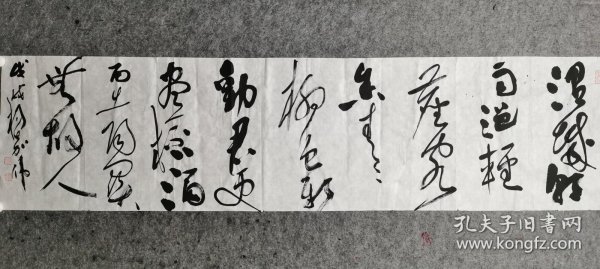 渭城朝
雨浥輕
塵客
舍青々
柳色新
勸君更
盡一杯酒
西出陽關
無故人
戊戌
孔夫子旧书网
www.kongfz.com